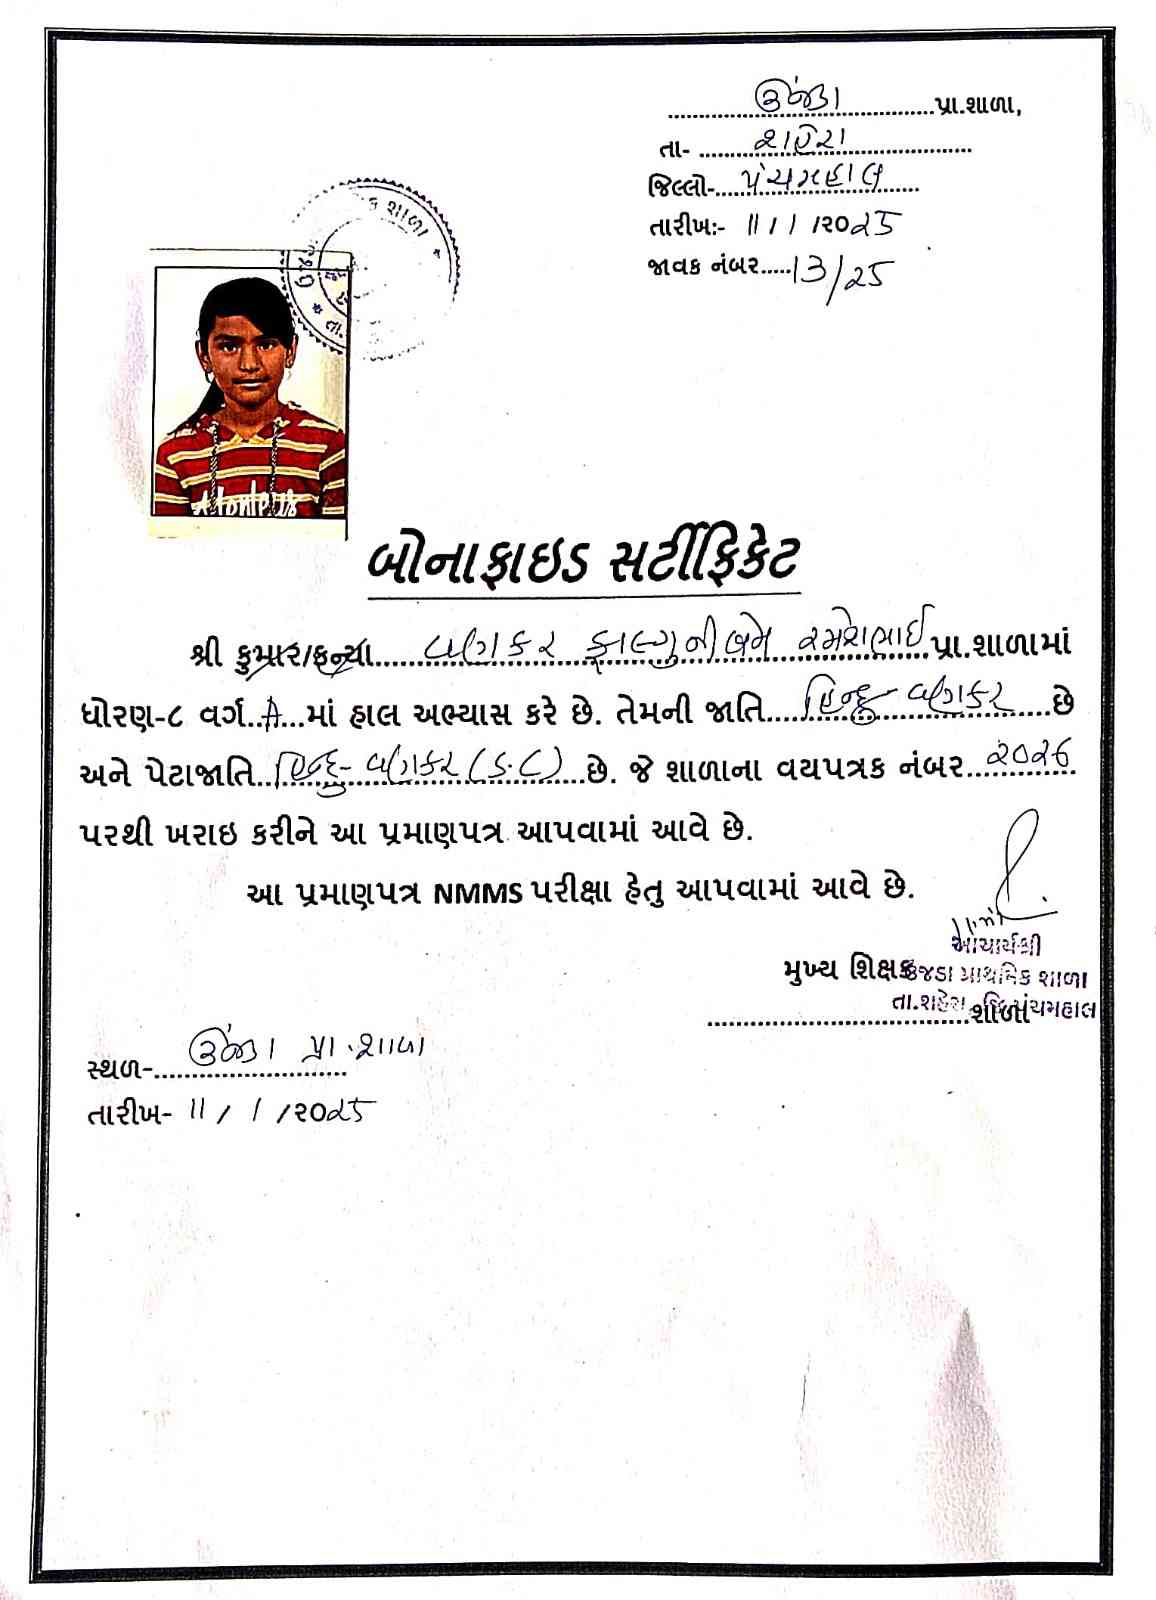 ઊંજડા પ્રા.શાળા,
તા- શહેરા
જિલ્લો- પંચમહાલ
તારીખ:- 11/1/૨૦૨5
જાવક નંબર 13/25
શાળા
Alonteus
બોનાફાઇડ સર્ટીફિકેટ
શ્રી કુમાર/કન્યા વણકર ફાલ્ગુનીબેન રમેશભાઈ પ્રા.શાળામાં
ધોરણ-૮ વર્ગ A માં હાલ અભ્યાસ કરે છે. તેમની જાતિ હિન્દુ-વણકર છે
અને પેટાજાતિ હિન્દુ-વણકર (S.C) છે. જે શાળાના વયપત્રક નંબર ૨૦૨૬
પરથી ખરાઇ કરીને આ પ્રમાણપત્ર આપવામાં આવે છે.
આ પ્રમાણપત્ર NMMS પરીક્ષા હેતુ આપવામાં આવે છે.
આચાર્યશ્રી
મુખ્ય શિક્ષક
ઊંજડા પ્રાથમિક શાળા
તા.શહેરા જિ.પંચમહાલ
શાળા
સ્થળ- ઊંજડા પ્રા.શાળા
તારીખ- 11/1/૨૦૨5